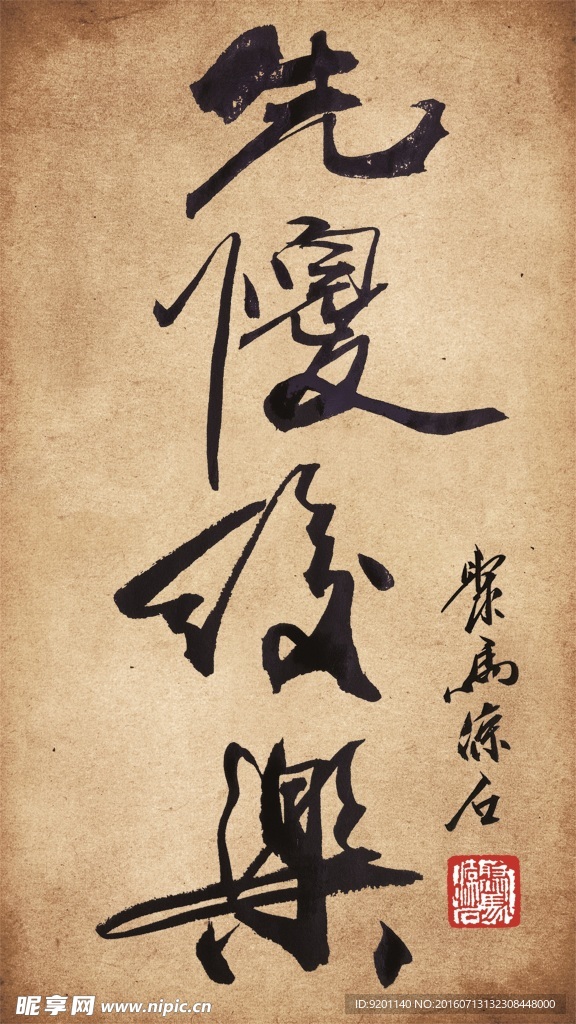 先優後樂
馬凉石
昵享网 www.nipic.cn
ID:9201140 NO:20160713132308448000